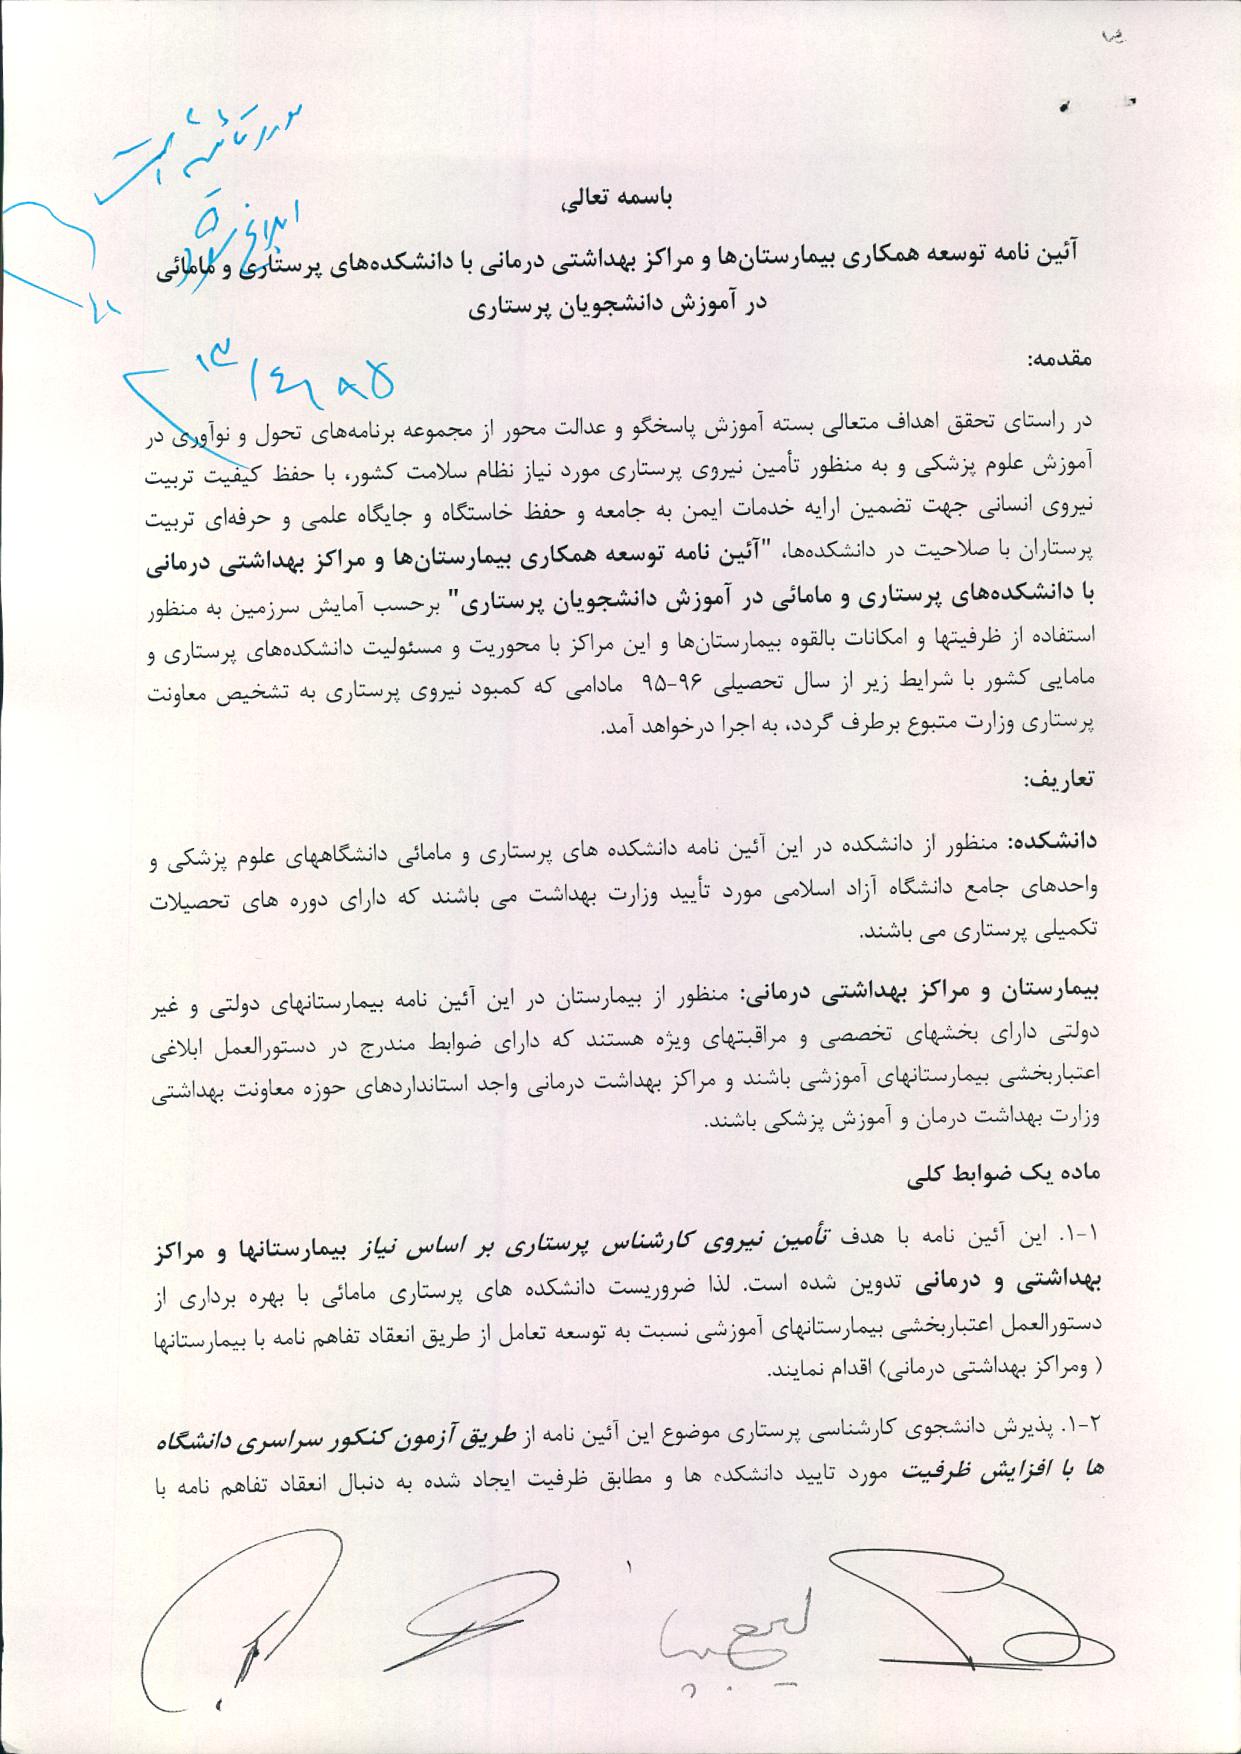 مورد تائید است
ابلاغ شود
باسمه تعالی
آئین نامه توسعه همکاری بیمارستان‌ها و مراکز بهداشتی درمانی با دانشکده‌های پرستاری و مامائی
در آموزش دانشجویان پرستاری
مقدمه:
در راستای تحقق اهداف متعالی بسته آموزش پاسخگو و عدالت محور از مجموعه برنامه‌های تحول و نوآوری در
آموزش علوم پزشکی و به منظور تأمین نیروی پرستاری مورد نیاز نظام سلامت کشور، با حفظ کیفیت تربیت
نیروی انسانی جهت تضمین ارایه خدمات ایمن به جامعه و حفظ خاستگاه و جایگاه علمی و حرفه‌ای تربیت
پرستاران با صلاحیت در دانشکده‌ها، "آئین نامه توسعه همکاری بیمارستان‌ها و مراکز بهداشتی درمانی
با دانشکده‌های پرستاری و مامائی در آموزش دانشجویان پرستاری" برحسب آمایش سرزمین به منظور
استفاده از ظرفیتها و امکانات بالقوه بیمارستان‌ها و این مراکز با محوریت و مسئولیت دانشکده‌های پرستاری و
مامایی کشور با شرایط زیر از سال تحصیلی ۹۶-۹۵ مادامی که کمبود نیروی پرستاری به تشخیص معاونت
پرستاری وزارت متبوع برطرف گردد، به اجرا درخواهد آمد.
تعاریف:
دانشکده: منظور از دانشکده در این آئین نامه دانشکده های پرستاری و مامائی دانشگاههای علوم پزشکی و
واحدهای جامع دانشگاه آزاد اسلامی مورد تأیید وزارت بهداشت می باشند که دارای دوره های تحصیلات
تکمیلی پرستاری می باشند.
بیمارستان و مراکز بهداشتی درمانی: منظور از بیمارستان در این آئین نامه بیمارستانهای دولتی و غیر
دولتی دارای بخشهای تخصصی و مراقبتهای ویژه هستند که دارای ضوابط مندرج در دستورالعمل ابلاغی
اعتباربخشی بیمارستانهای آموزشی باشند و مراکز بهداشت درمانی واجد استانداردهای حوزه معاونت بهداشتی
وزارت بهداشت درمان و آموزش پزشکی باشند.
ماده یک ضوابط کلی
۱-۱. این آئین نامه با هدف تأمین نیروی کارشناس پرستاری بر اساس نیاز بیمارستانها و مراکز
بهداشتی و درمانی تدوین شده است. لذا ضروریست دانشکده های پرستاری مامائی با بهره برداری از
دستورالعمل اعتباربخشی بیمارستانهای آموزشی نسبت به توسعه تعامل از طریق انعقاد تفاهم نامه با بیمارستانها
( ومراکز بهداشتی درمانی) اقدام نمایند.
۱-۲. پذیرش دانشجوی کارشناسی پرستاری موضوع این آئین نامه از طریق آزمون کنکور سراسری دانشگاه
ها با افزایش ظرفیت مورد تایید دانشکده ها و مطابق ظرفیت ایجاد شده به دنبال انعقاد تفاهم نامه با
۱